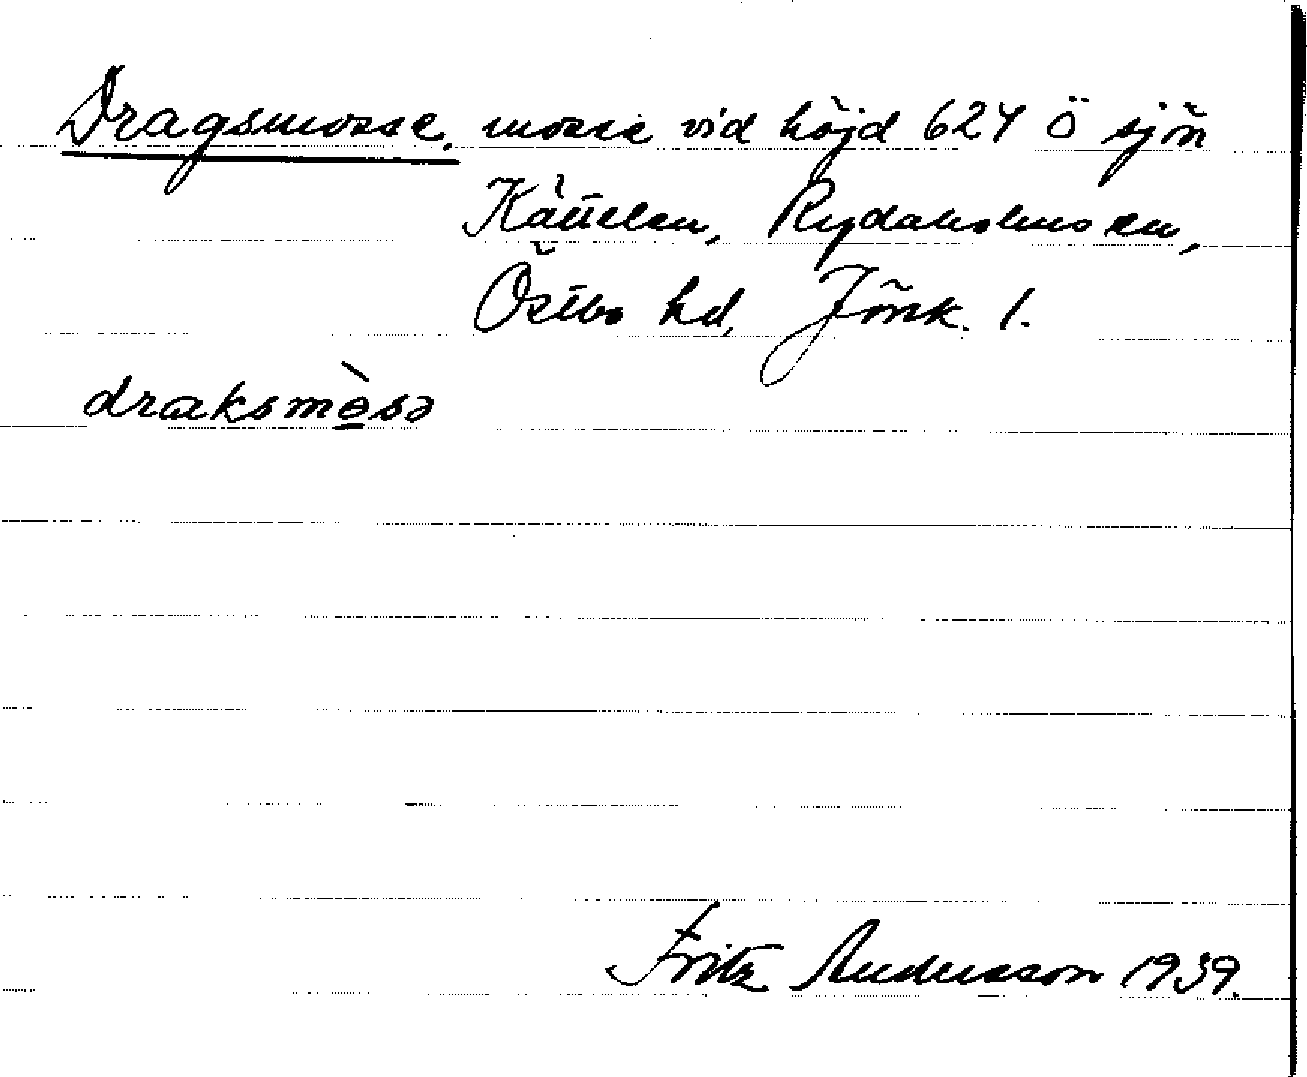 Dragsmosse. mosse vid höjd 624 Ö sjön
Rydaholms sn,
Östbo hd, Jönk. l.
draksmòsə
Fritz Andersson 1939.